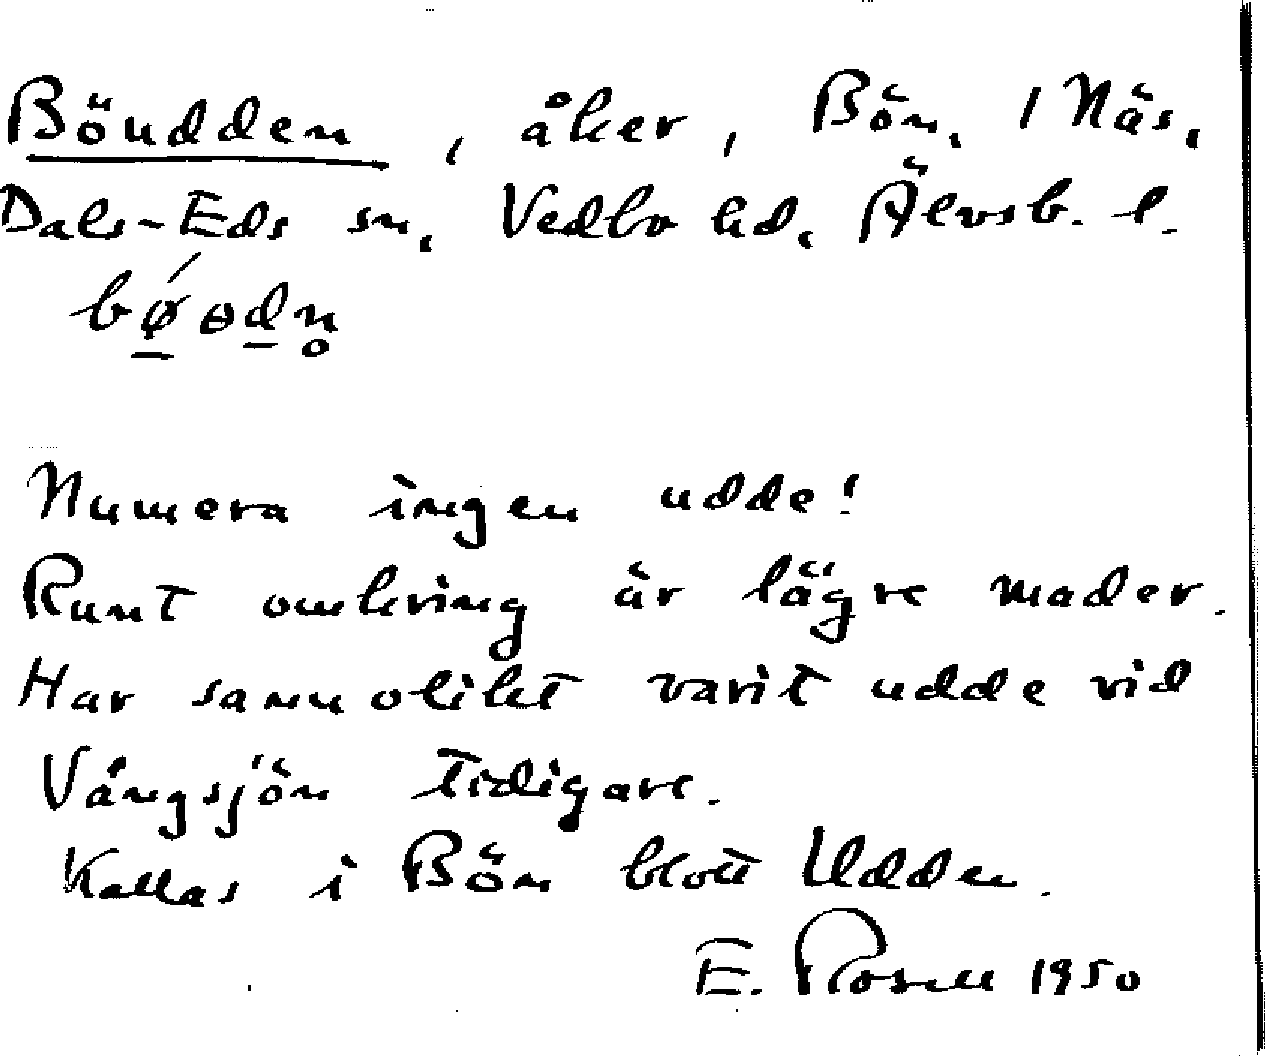 Böudden, åker, Bön, 1 Näs,
Dals-Eds sn, Vedbo hd, Älvsb. l.
bǿ̱ɵḏn̥
Numera ingen udde!
Runt omkring är lägre mader.
Har sannolikt varit udde vid
Vångsjön tidigare.
Kallas i Bön blott Udden.
E. Rosell 1950